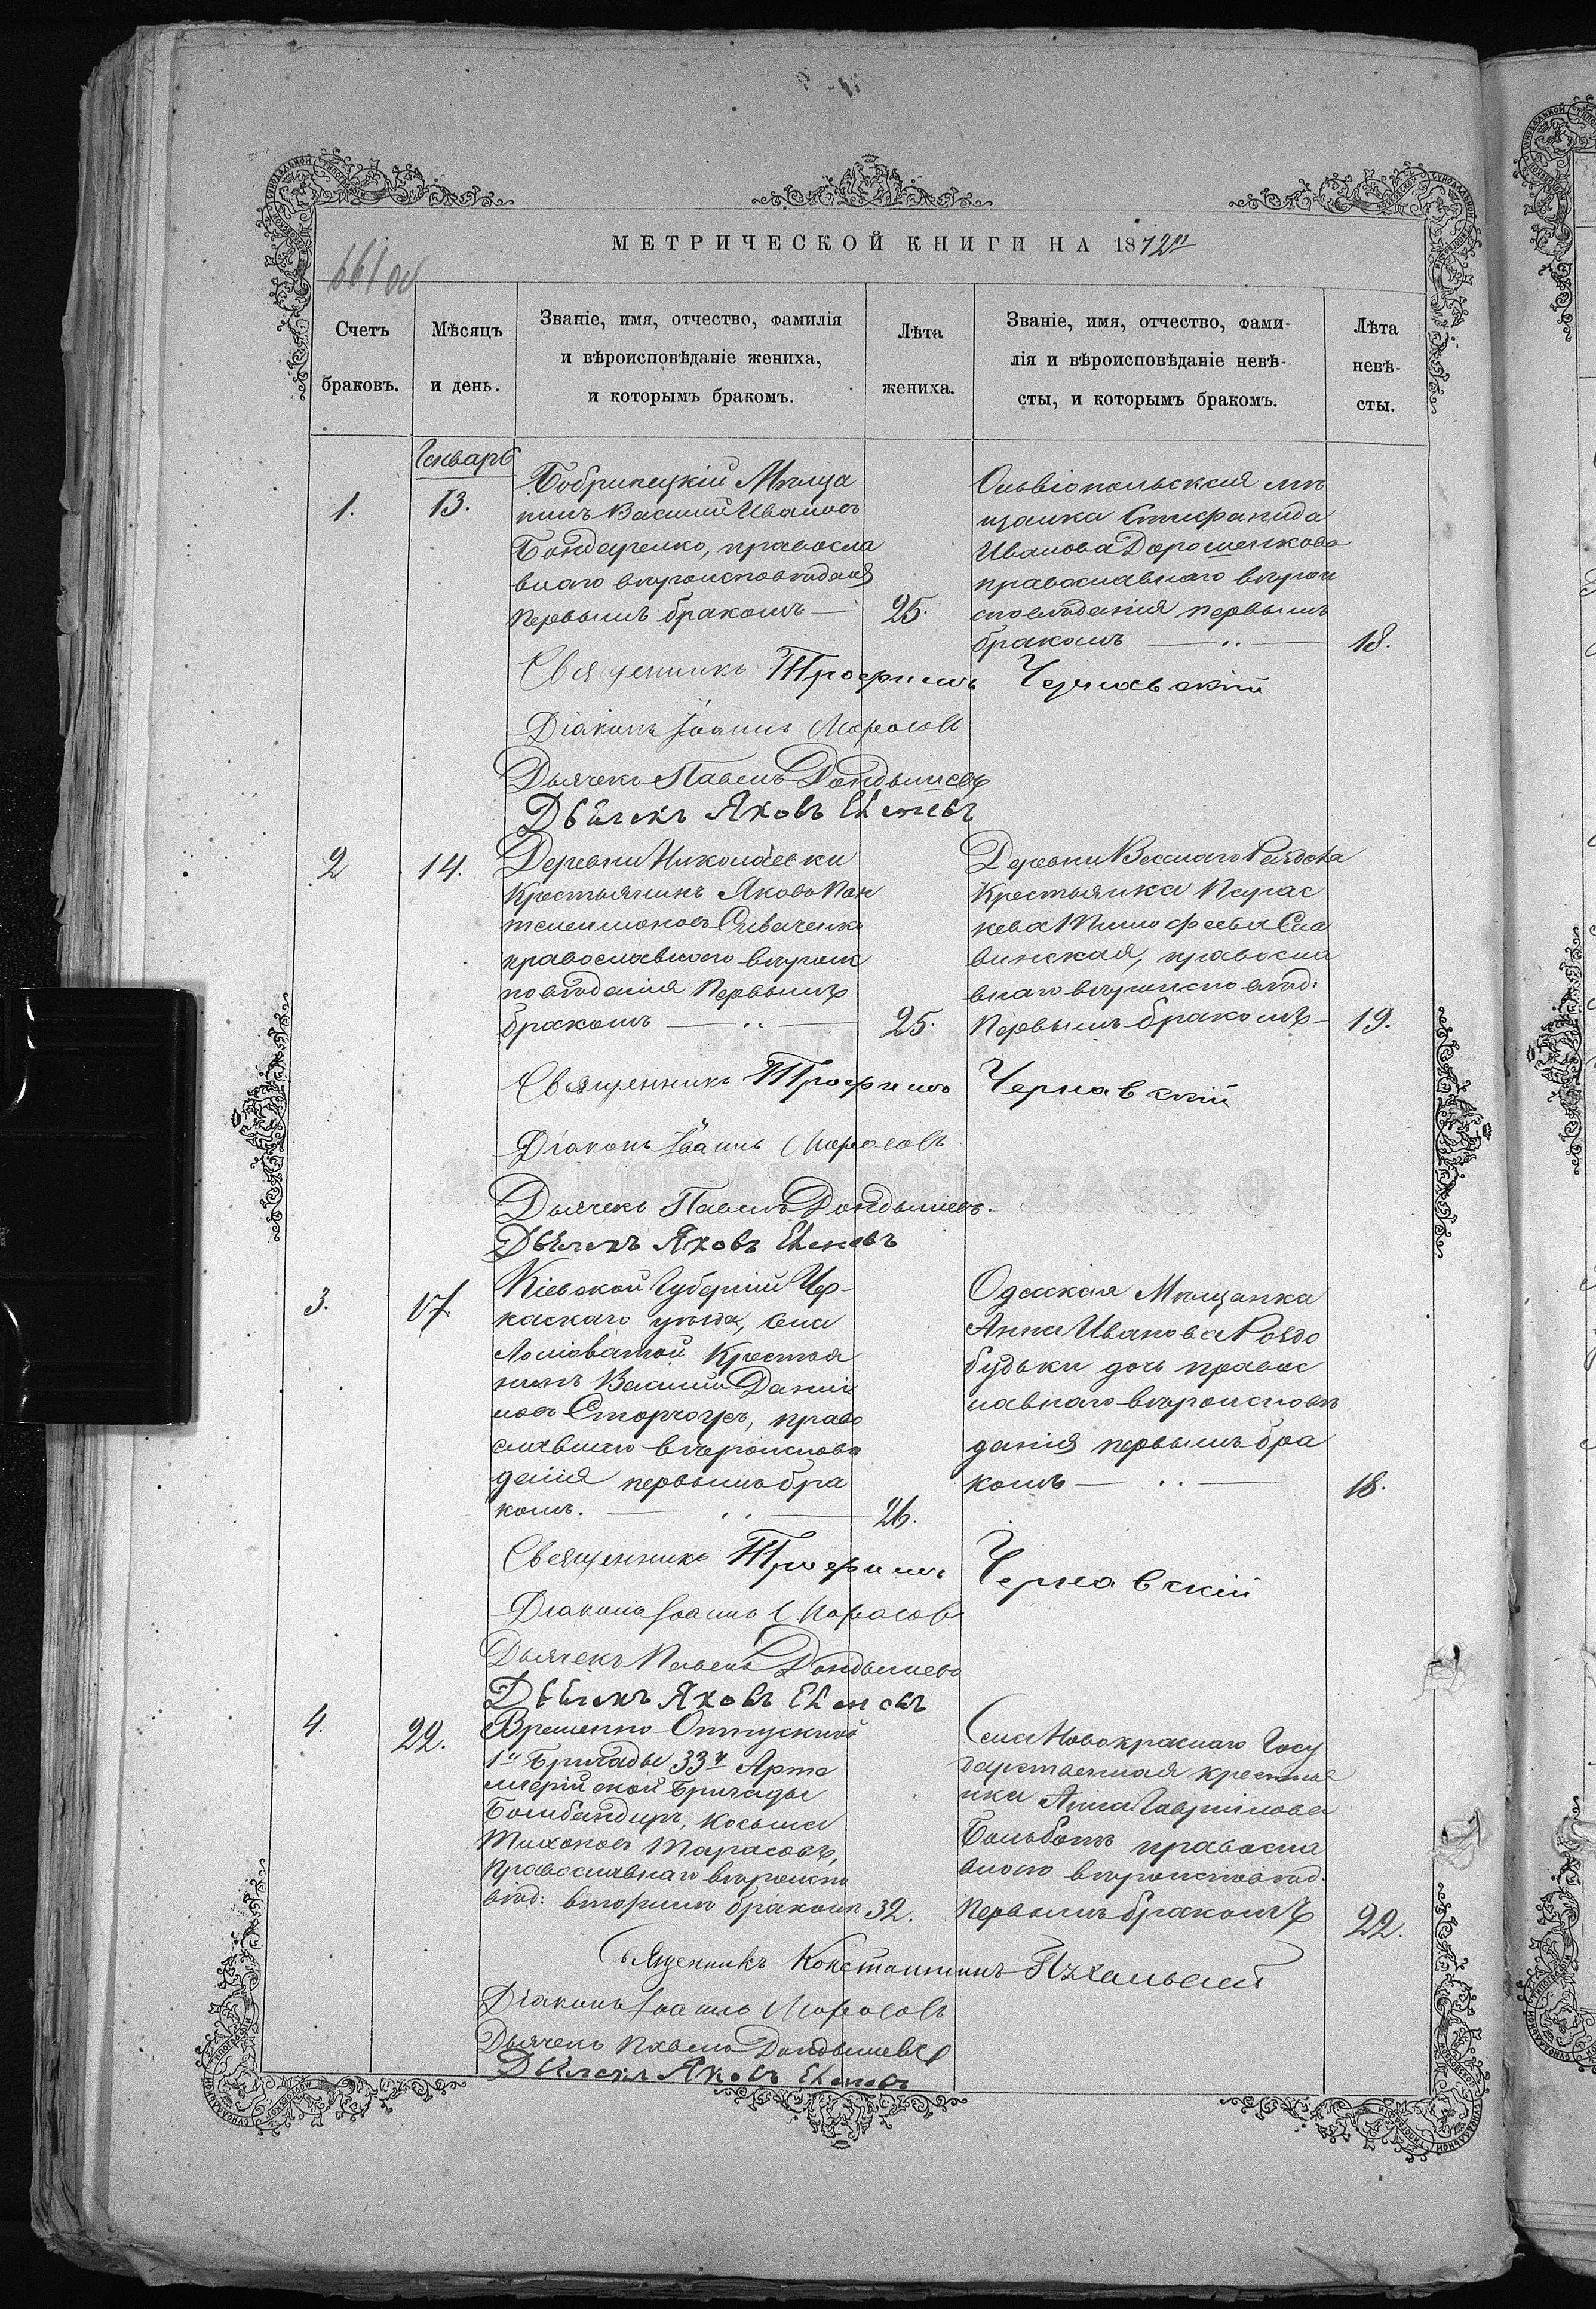 МЕТРИЧЕСКОЙ КНИГИ НА 1872й
661 об
Счетъ браковъ.
Мѣсяцъ и день.
Званіе, имя, отчество, фамилія
и вѣроисповѣданіе жениха,
и которымъ бракомъ.
Лѣта жениха.
Званіе, имя, отчество, фами-
лія и вѣроисповѣданіе невѣ-
сты, и которымъ бракомъ.
Лѣта невѣ-
сты.
Генварь
1.
13.
Бобринецкій Мѣща
нинъ Василій Ивановъ
Бондаренко, правосла
внаго вѣроисповѣданія
первымъ бракомъ —
25.
Ольвіопольская мѣ
щанка Стефанида
Иванова Дорошенкова
православнаго вѣрои
сповѣданія первымъ
бракомъ — „ —
18.
Священникъ Трофимъ Чернавскій
Діаконъ Іоаннъ
Дьячекъ Павелъ Дондышевъ
Дьячекъ Яковъ
2
14.
Деревни Николаевки
Крестьянинъ Яковъ Пан
телеимоновъ Сиваченко
православнаго вѣроис
повѣданія первымъ
бракомъ — „ —
25.
Деревни Веселаго Раздола
Крестьянка Парас
кева Тимофеева Сла
винская, правосла
внаго вѣроисповѣд:
первымъ бракомъ —
19.
Священникъ Трофимъ Чернавскій
Діаконъ Іоаннъ
Дьячекъ Павелъ Дондышевъ.
Дьячекъ Яковъ
3.
17.
Кіевской Губерніи Чер-
каскаго уѣзда, села
Лошоватой Крестья
нинъ Василій Даніи
ловъ Сторчоусъ, право
славнаго вѣроисповѣ
данія первымъ бра
комъ. — „ —
26.
Одесская Мѣщанка
Анна Иванова
дочь правос
лавнаго вѣроисповѣ
данія первымъ бра
комъ — „ —
18.
Священникъ Трофимъ Чернавскій
Діаконъ Іоаннъ
Дьячекъ Павелъ Дондышевъ
Дьячекъ Яковъ
4.
22.
Временно-Отпускной
1й Бригады 33й Арти
лерійской Бригады
Бомбандиръ, Косьма
Тихоновъ Тарасовъ,
Православнаго вѣроиспо
вѣд: вторымъ бракомъ
32.
Села Новокраснаго Госу
дарственная крестья
нка Анна Гаврилова
правосла
внаго вѣроисповѣд.
первымъ бракомъ
22.
Священникъ Константинъ
Діаконъ Іоаннъ
Дьячекъ Павелъ Дондышевъ
Дьячекъ Яковъ